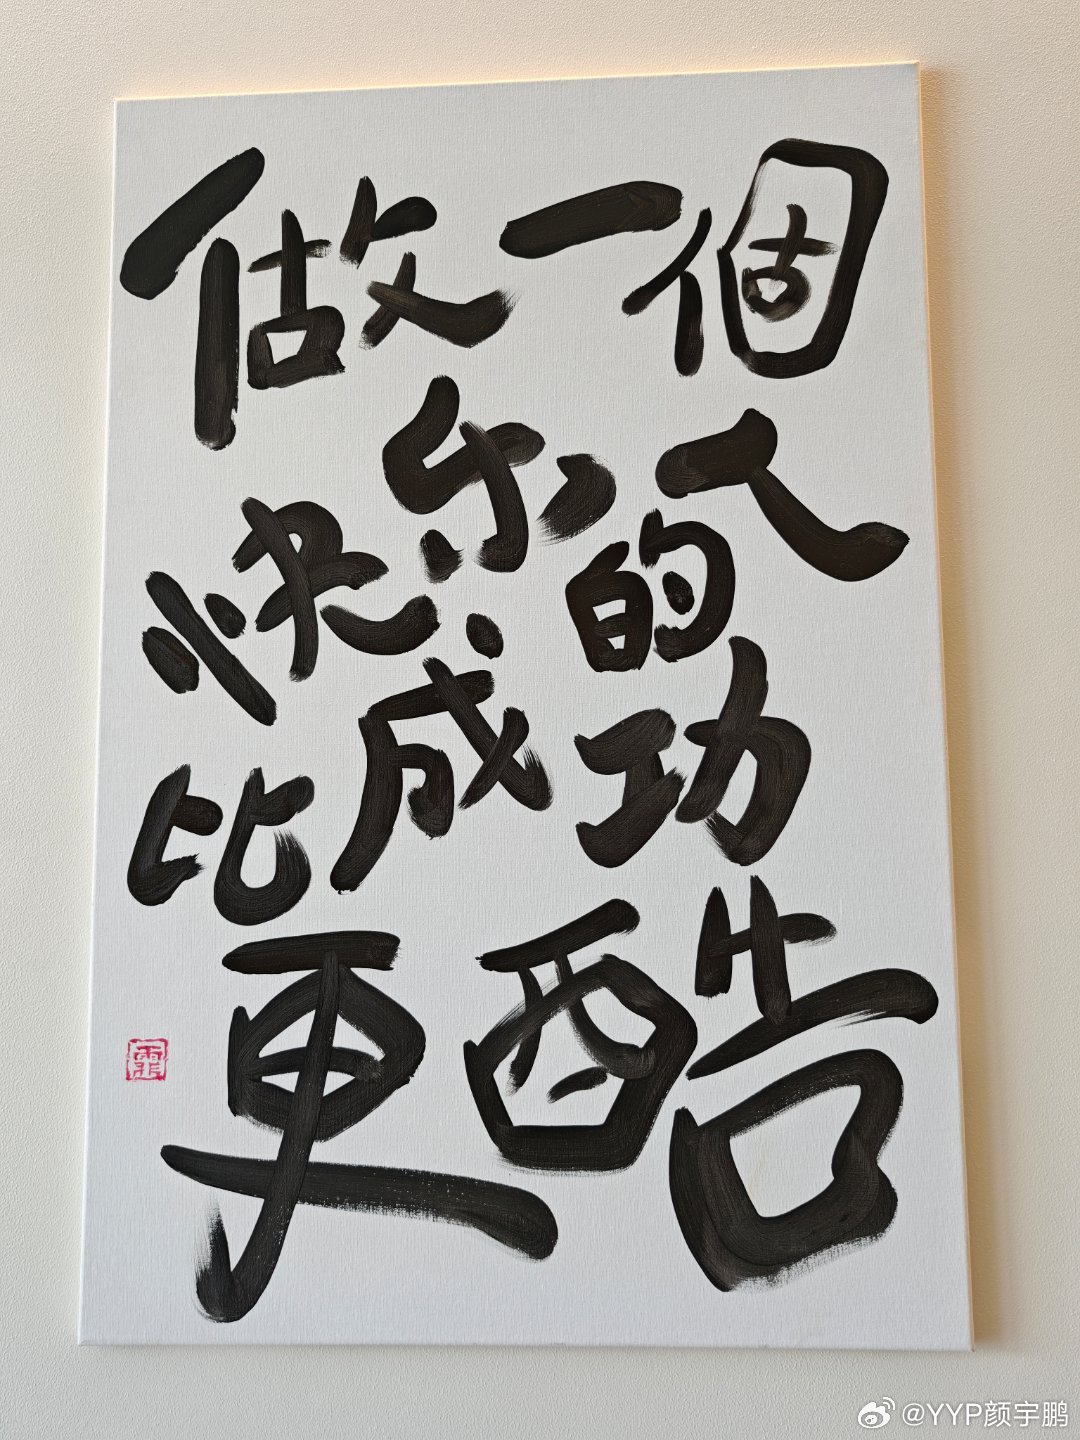 做一個
快乐的人
比成功
更酷
@YYP颜宇鹏